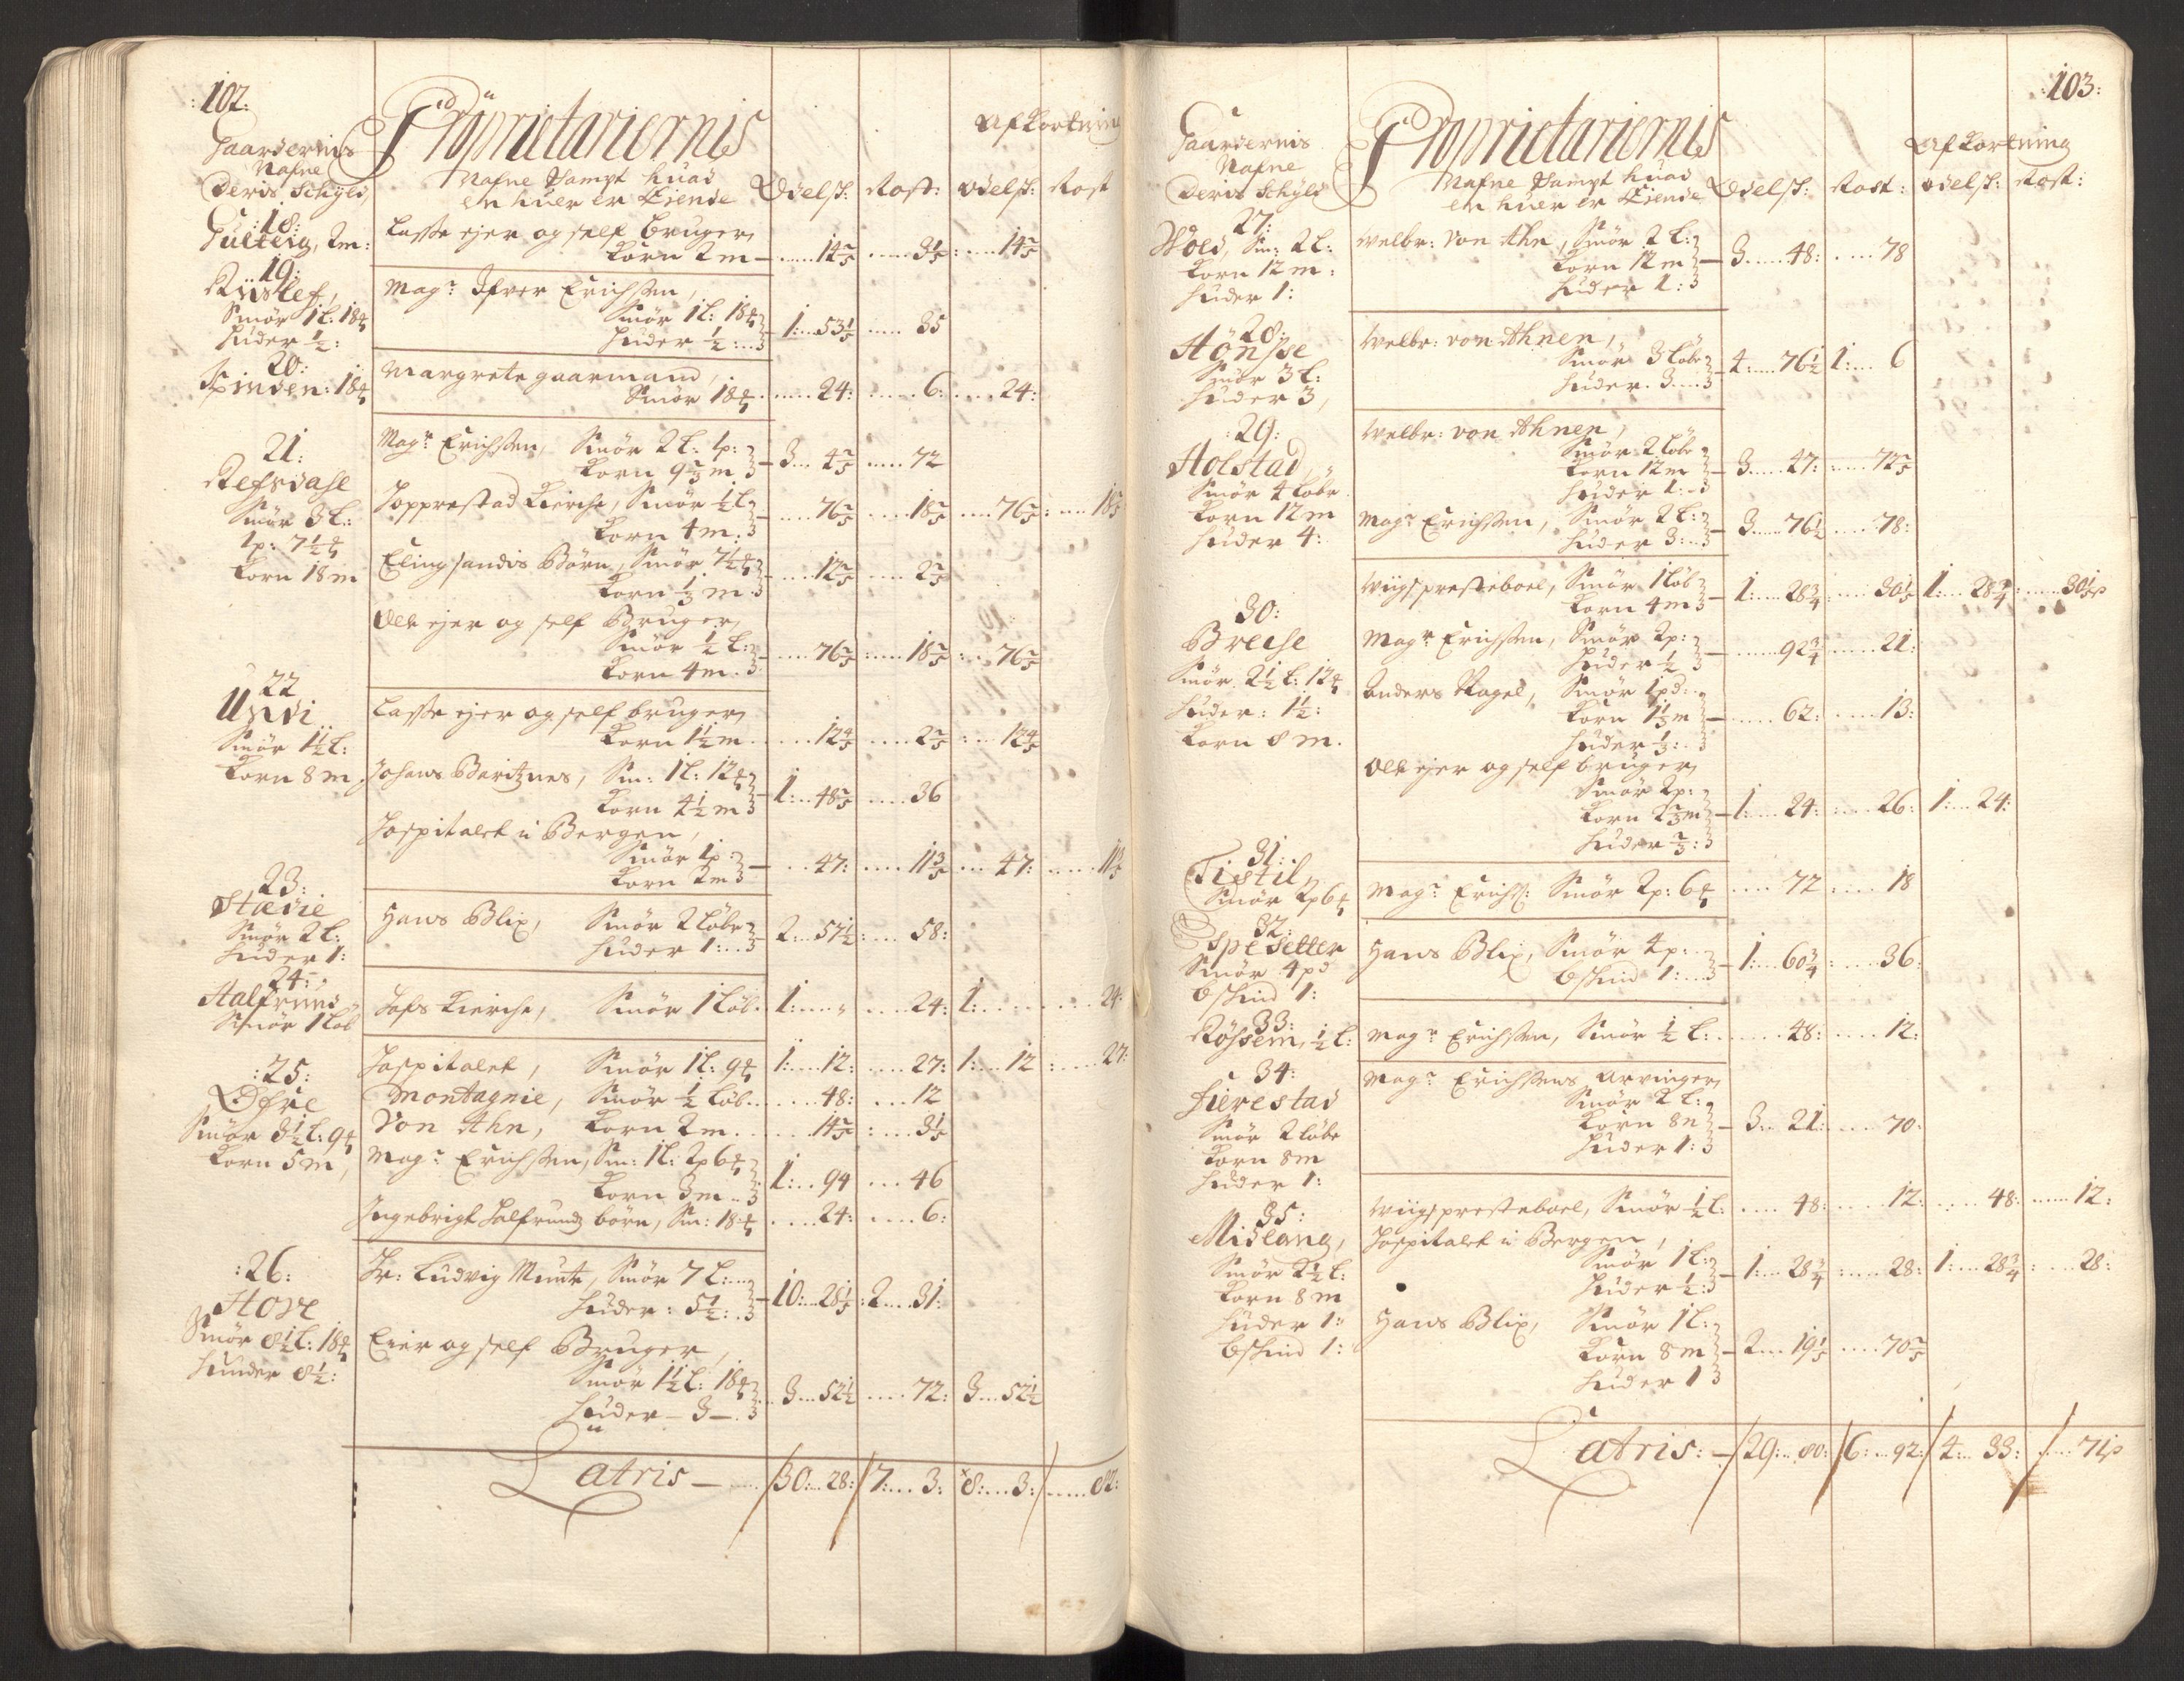 :102:
Gaardernis
Nafne
Deris Schyld,
Proprietariernis
Nafne Sampt huad
en huer er Eiende
Odelsk:
Rost:
Afkortning
odelsk:
Rost
:18:
Gulteig, 2m:
Lasse ejer og self bruger,
Korn 2 m – ...... 14 2/5 ...... 3 1/5 : .... 14 2/5
:19:
Ruslef,
Smör 1l: 18
Huder ½:
Magr. Ifver Erichssen,
Smör 1l: 18
Huder ½: ..
1: ... 53 1/5 ..... 35
20:
Spinden: 18
Margrete gaarmand,
Smör 18 ...... 24: ...... 6: ..... 24:
21:
Refsdahl
Smör 3 l:
1p: 7½
Korn 18 m
Magr. Erichssen, Smör 2 l: 1p:
Korn 9 2/3 m
3 ... 4 2/5 ..... 72
Hopprestad Kierche, Smör ½ l:
Korn 4 m:
.... 76 2/5 .... 18 2/5 .... 76 2/5 : .... 18 2/5
Elingsandis Börn, Smör 7½
Korn 1/3 m
..... 12 2/5 .... 2 2/5
Olle ejer og self Bruger,
Smör ½ l:
Korn 4 m.
.... 76 2/5 : .... 18 2/5 : .. 76 2/5
22
Undi
Smör 1½ l:
Korn 8 m
Lasse ejer og self bruger,
Korn 1½ m ..... 12 4/5 ..... 2 2/5 : ... 12 4/5
Johans Baritznes, Sm: 1l: 12
Korn 4½ m
1: ... 48 2/5 ..... 36
Hospitalet i Bergen,
Smör 1p:
Korn 2 m
... 47: ..... 11 3/5 ... 47: ..... 11 3/5
23:
Stædie
Smör 2 l:
Huder 1:
Hans Blix, Smör 2 löbe
Huder 1: ..
2: .. 57½ : .... 58:
24:
Halfrund
Smör 1 löb
Hofs Kierche, Smör 1 löb. 1: ..... „ .... 24: 1: ........ 24:
:25:
Öfre
Smör 3½ l: 9
Korn 5 m,
Hospitalet, Smör 1l: 9 1: .... 12: .... 27: 1: ... 12 : .... 27:
Montagnie, Smör ½ löb ...... 48: ... 12
Von Ahn, Korn 2 m ...... 14 2/5 : ... 3 1/5
Magr. Erichssen, Sm: 1l: 2p 6
Korn 3 m ..
1: .. 94 ... 46
Ingebrigt Halfrunds börn, Sm: 18 ..... 24: .... 6:
:26:
Hove
Smör 8½ l: 18
Hunder 8½:
Hr: Ludvig Munte, Smör 7 l: ...
Huder: 5½: ..
10: ... 28 1/5 : 2 .... 31:
Eier og self Bruger,
Smör 1½ l: 18
Huder – 3 –.
.. 3 ... 52½ ..... 72: 3 ... 52½
Latris – ..... 30: .. 28: 7: ... 3: 8: ... 3: ...... 82:
:103:
Gaardernis
Nafne
Deris Schyld
Proprietariernis
Nafne Sampt huad
en huer er Eiende
Odelsk:
Rost:
Afkortning
odelsk:
Rost:
27:
Wold, Sm: 2 l:
Korn 12 m:
Huder 1:
Welbr: Von Ahn, Smör 2 l:
Korn 12 m
Huder 1:
3 ..... 48: ..... 78
28:
Hönsse
Smör 3 l:
Huder 3,
Welbr: von Ahnen,
Smör 3 löbe
Huder. 3 ....
4: ..... 76½ 1: ... 6
:29:
Holstad,
Smör 4 löbe
Korn 12 m
Huder 4:
Welbr: von Ahnen,
Smör 2 löbe
Korn 12 m
Huder 1: ..
3 ..... 47: ..... 72 2/5
Magr. Erichssen, Smör 2 l:
Huder 3: ..
3 ..... 76½ .... 78:
30:
Brechc
Smör 2½ l: 12
Huder: 1½:
Korn 8 m.
Wiigs presteboel, Smör 1 löb
Korn 4 m
1: .... 28 3/4 : .... 30 1/5 1: ... 28 3/4 : ..... 30 1/5
Magr Erichssen, Smör 2p:
Huder ½
...... 92 3/4 : ..... 21:
Anders Nagel, Smör 1pd:
Korn 1 1/3 m
Huder 1/3:
...... 62: ..... 13:
Olle ejer og self bruger,
Smör 2p:
Korn 2 2/3 m
Huder 2/3:
1: .... 24: ..... 26: 1: ... 24:
31:
Tistil,
Smör 2p 6
Magr. Erichss: Smör 2p: 6 ..... 72 ..... 18
32:
Espesetter
Smör 4pd
bskind 1:
Hans Blix, Smör 4p:
bskind 1: ....
1: .... 60 3/4 : .... 36:
33:
Röhsem, ½ l:
Magr. Erichssen, Smör ½ l: ....... 48: ..... 12:
34:
Fierestad
Smör 2 löbe
Korn 8 m
Huder 1:
Magr. Erichssens arvinger,
Smör 2 l:
Korn 8 m
Huder 1:
3 ... 21: ..... 70:
35:
Midlang,
Smör 2½ l:
Korn 8 m
Huder 1:
bskind 1:
Wiigs presteboel, Smör ½ l: ..... 48: ..... 12: ..... 48: ...... 12:
Hospitalet i Bergen,
Smör 1l:
Huder ½:
1: .... 28 3/4 : .... 28: 1: ... 28 3/4 : .... 28:
Hans Blix, Smör 1l:
Korn 8 m
Huder 1
2 .... 19 1/5 ..... 70 2/5
Latris: – 29: .. 80: 6: ... 92: 4: .. 33: ..... 71